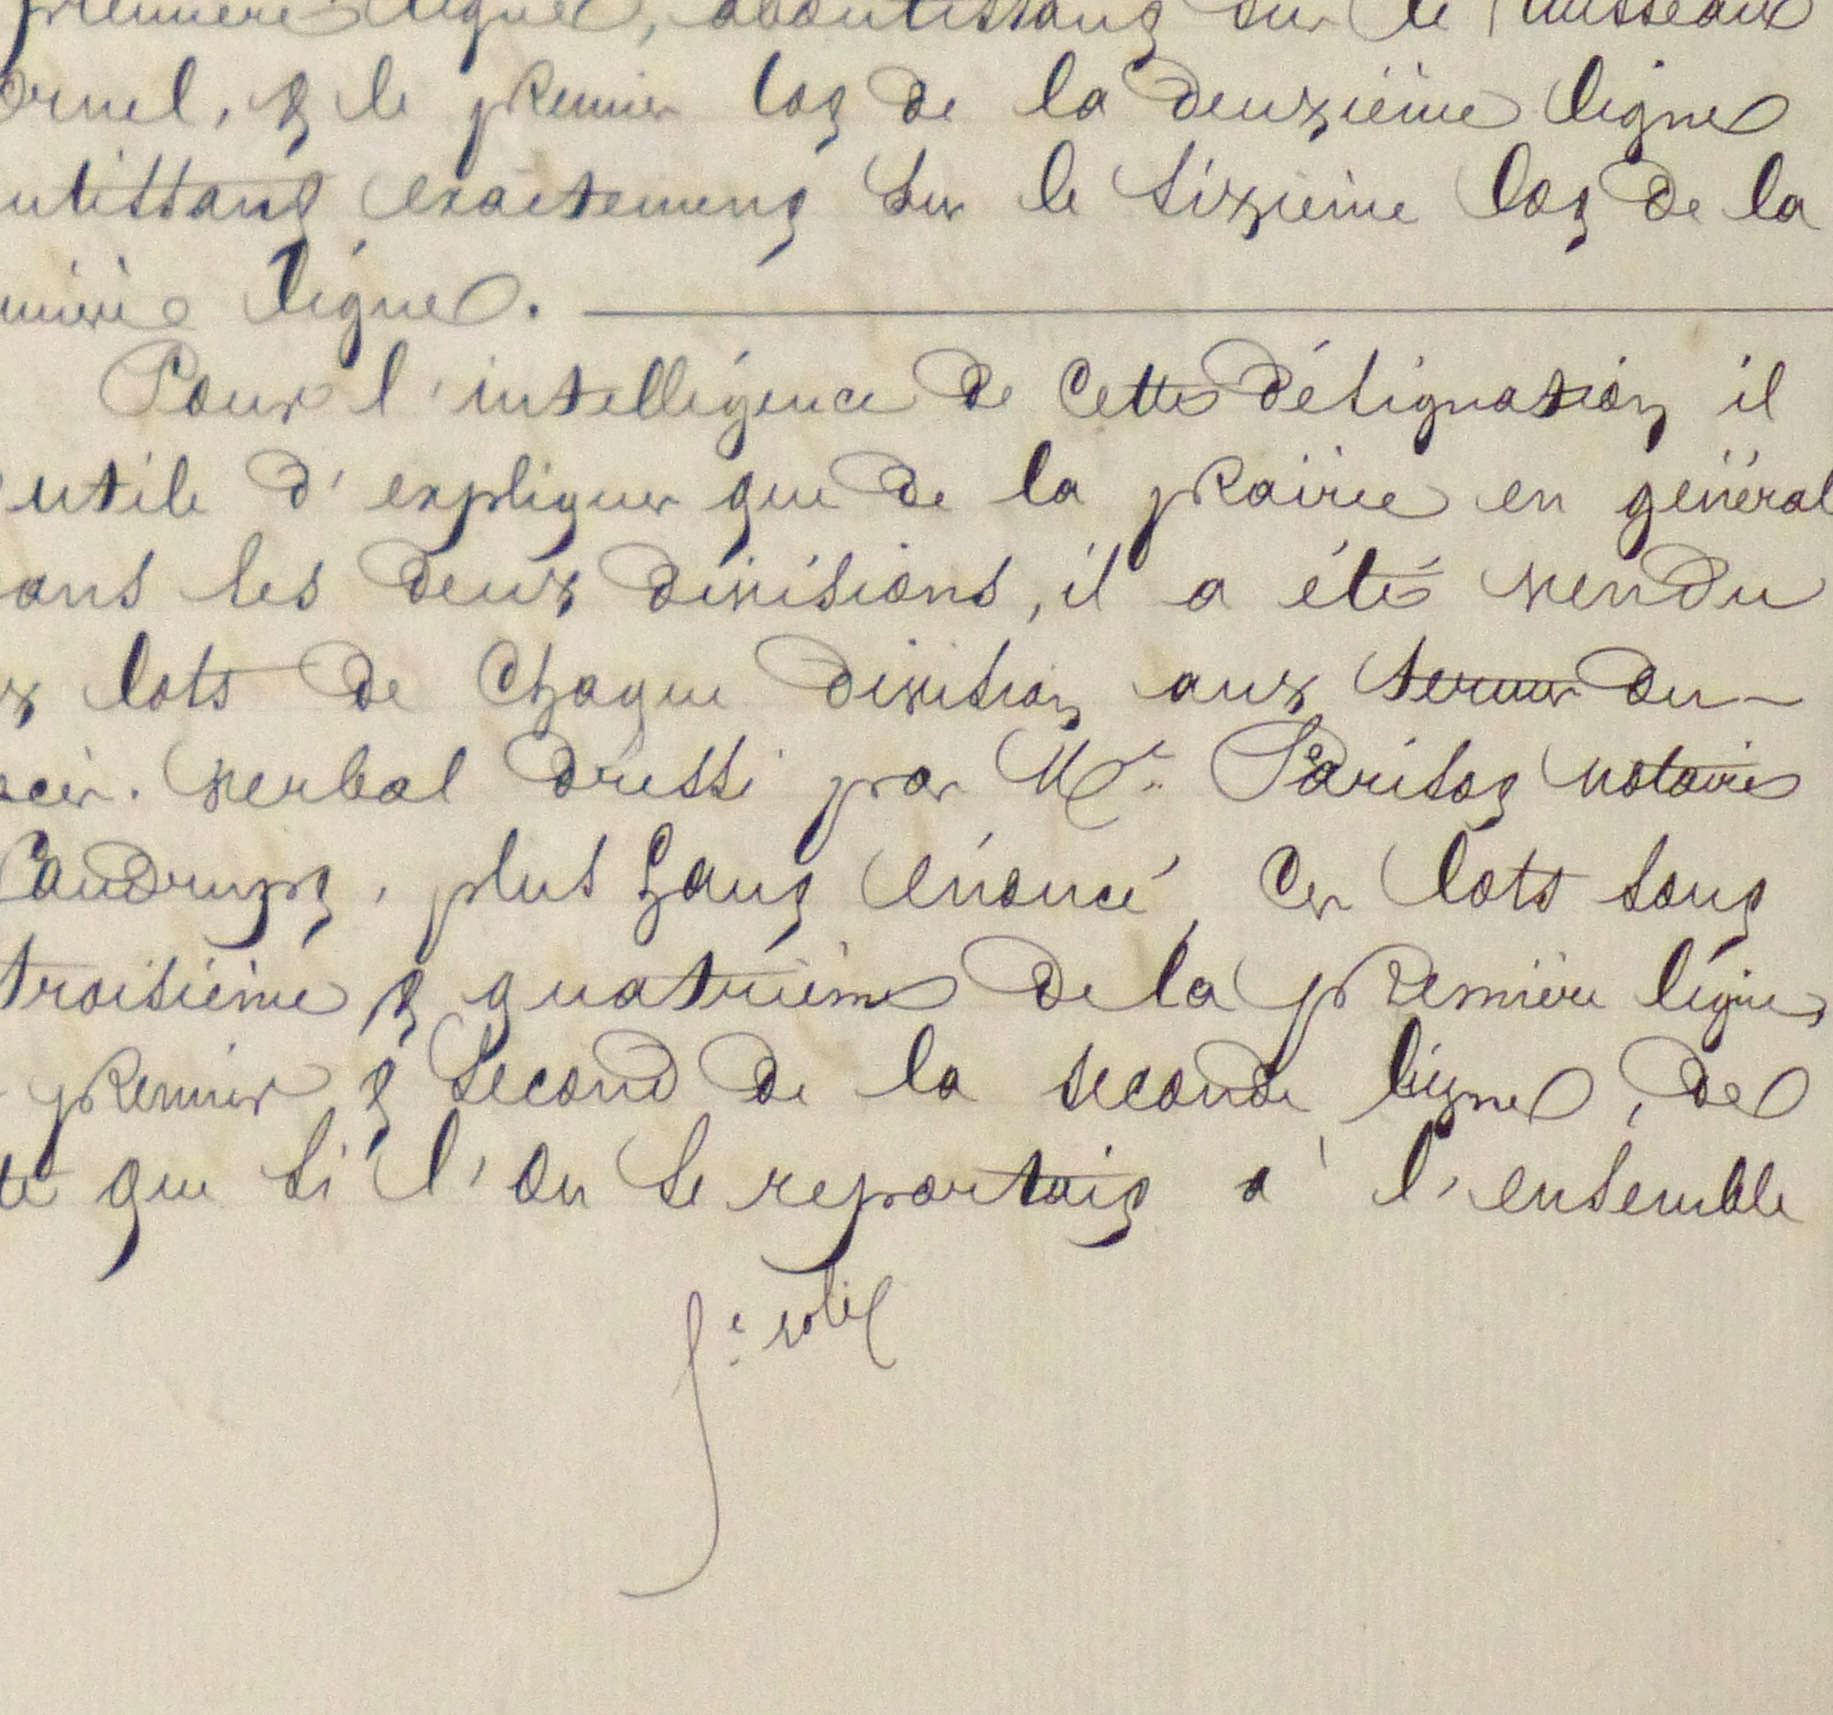 première ligne, aboutissant sur le ruisseau
ornel, & le premier lot de la deuxième ligne
utissant exactement sur le sixième lot de la
mière ligne.
Pour l'intelligence de cette désignation il
utile d'expliquer que de la prairie en général
ans les deux divisions, il a été vendu
x lots de chaque division aux termes du
cès-verbal dressé par Me Parisot notaire
Caudrupt, plus haut énoncé, ces lots sont
troisième & quatrième de la première ligne,
premier & second de la seconde ligne, de
te que si l'on se reportait à l'ensemble